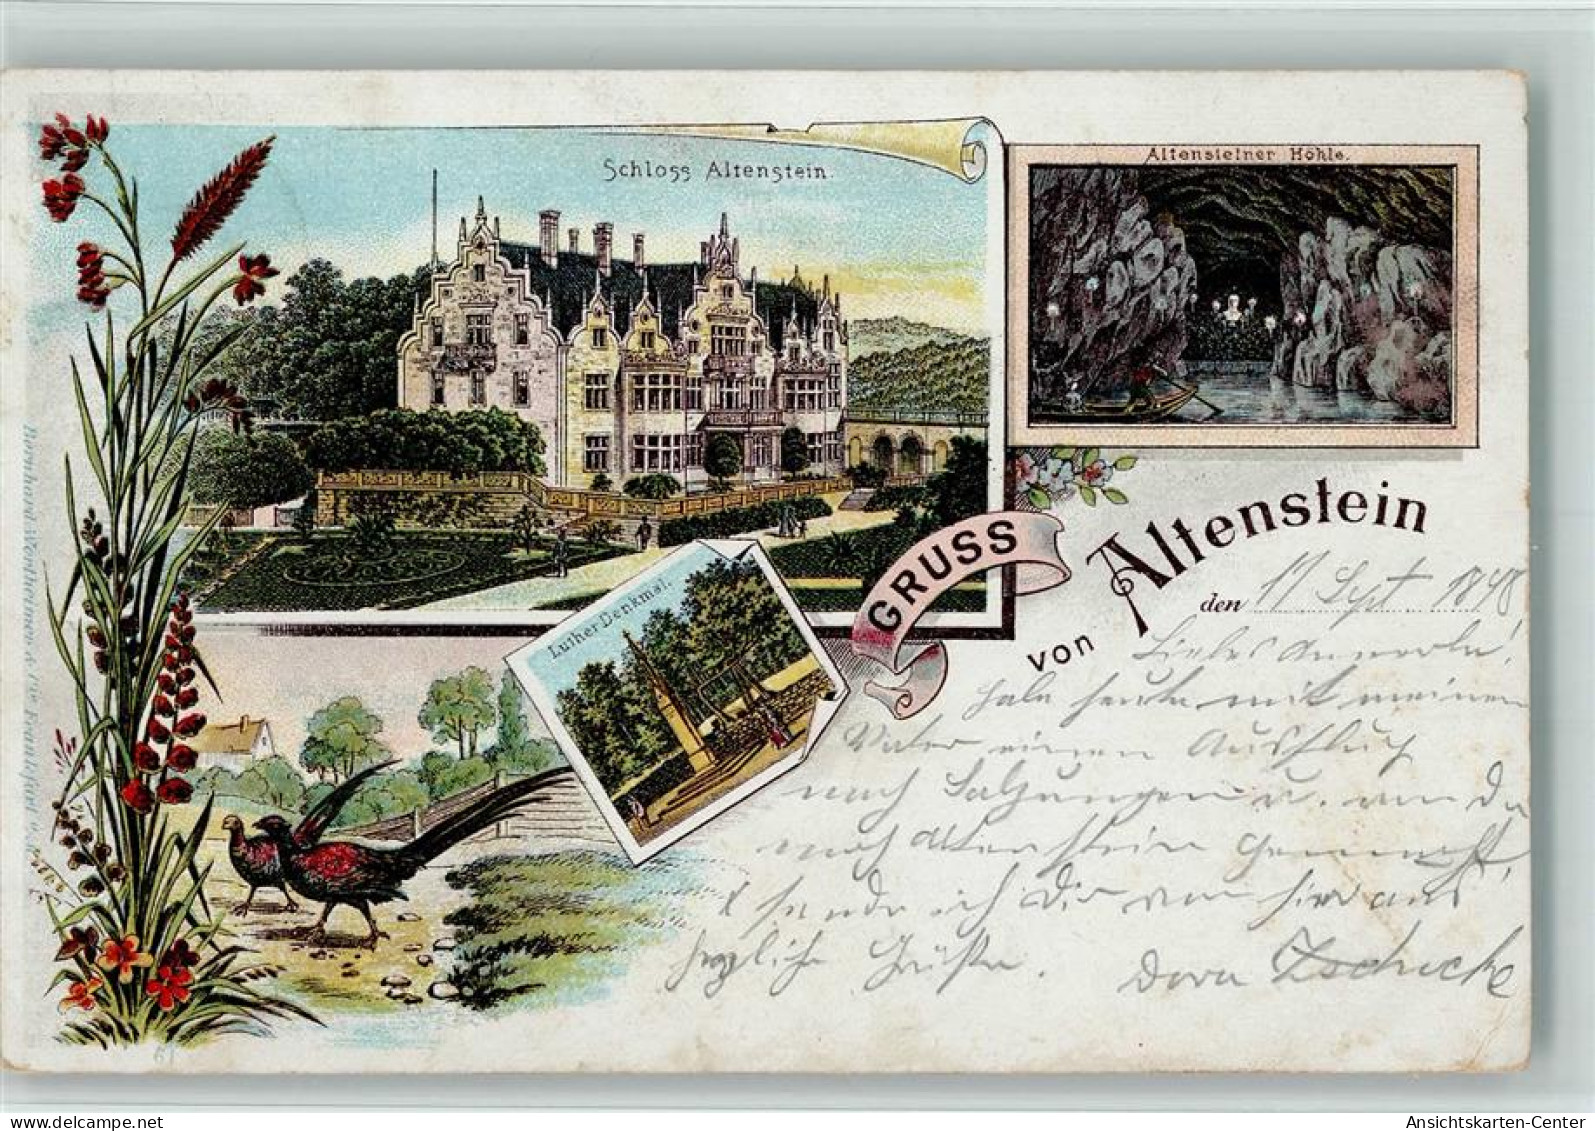 Schloss Altenstein.
Altensteiner Höhle.
Luther Denkmal.
GRUSS
von Altenstein
den 17 Sept. 1898
Liebe
habe heute mit meinem
Vater einen Ausflug
nach Salzungen u. von da
nach Altenstein gemacht,
sende ich Dir von hier aus
herzliche Grüße. Dora Zschucke
61
delcampe.net
Ansichtskarten-Center